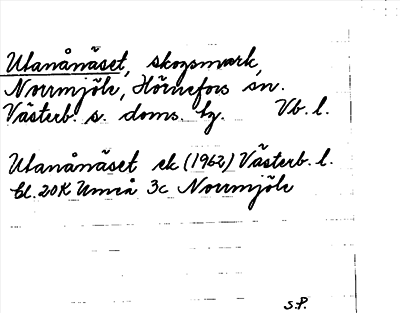 Utanånäset, skogsmark,
Norrmjöle, Hörnefors sn.
Västerb. s. doms. hg. Vb. l.
Utanånäset ek (1962) Västerb. l.
bl. 20K Umeå 3c Norrmjöle
S.P.